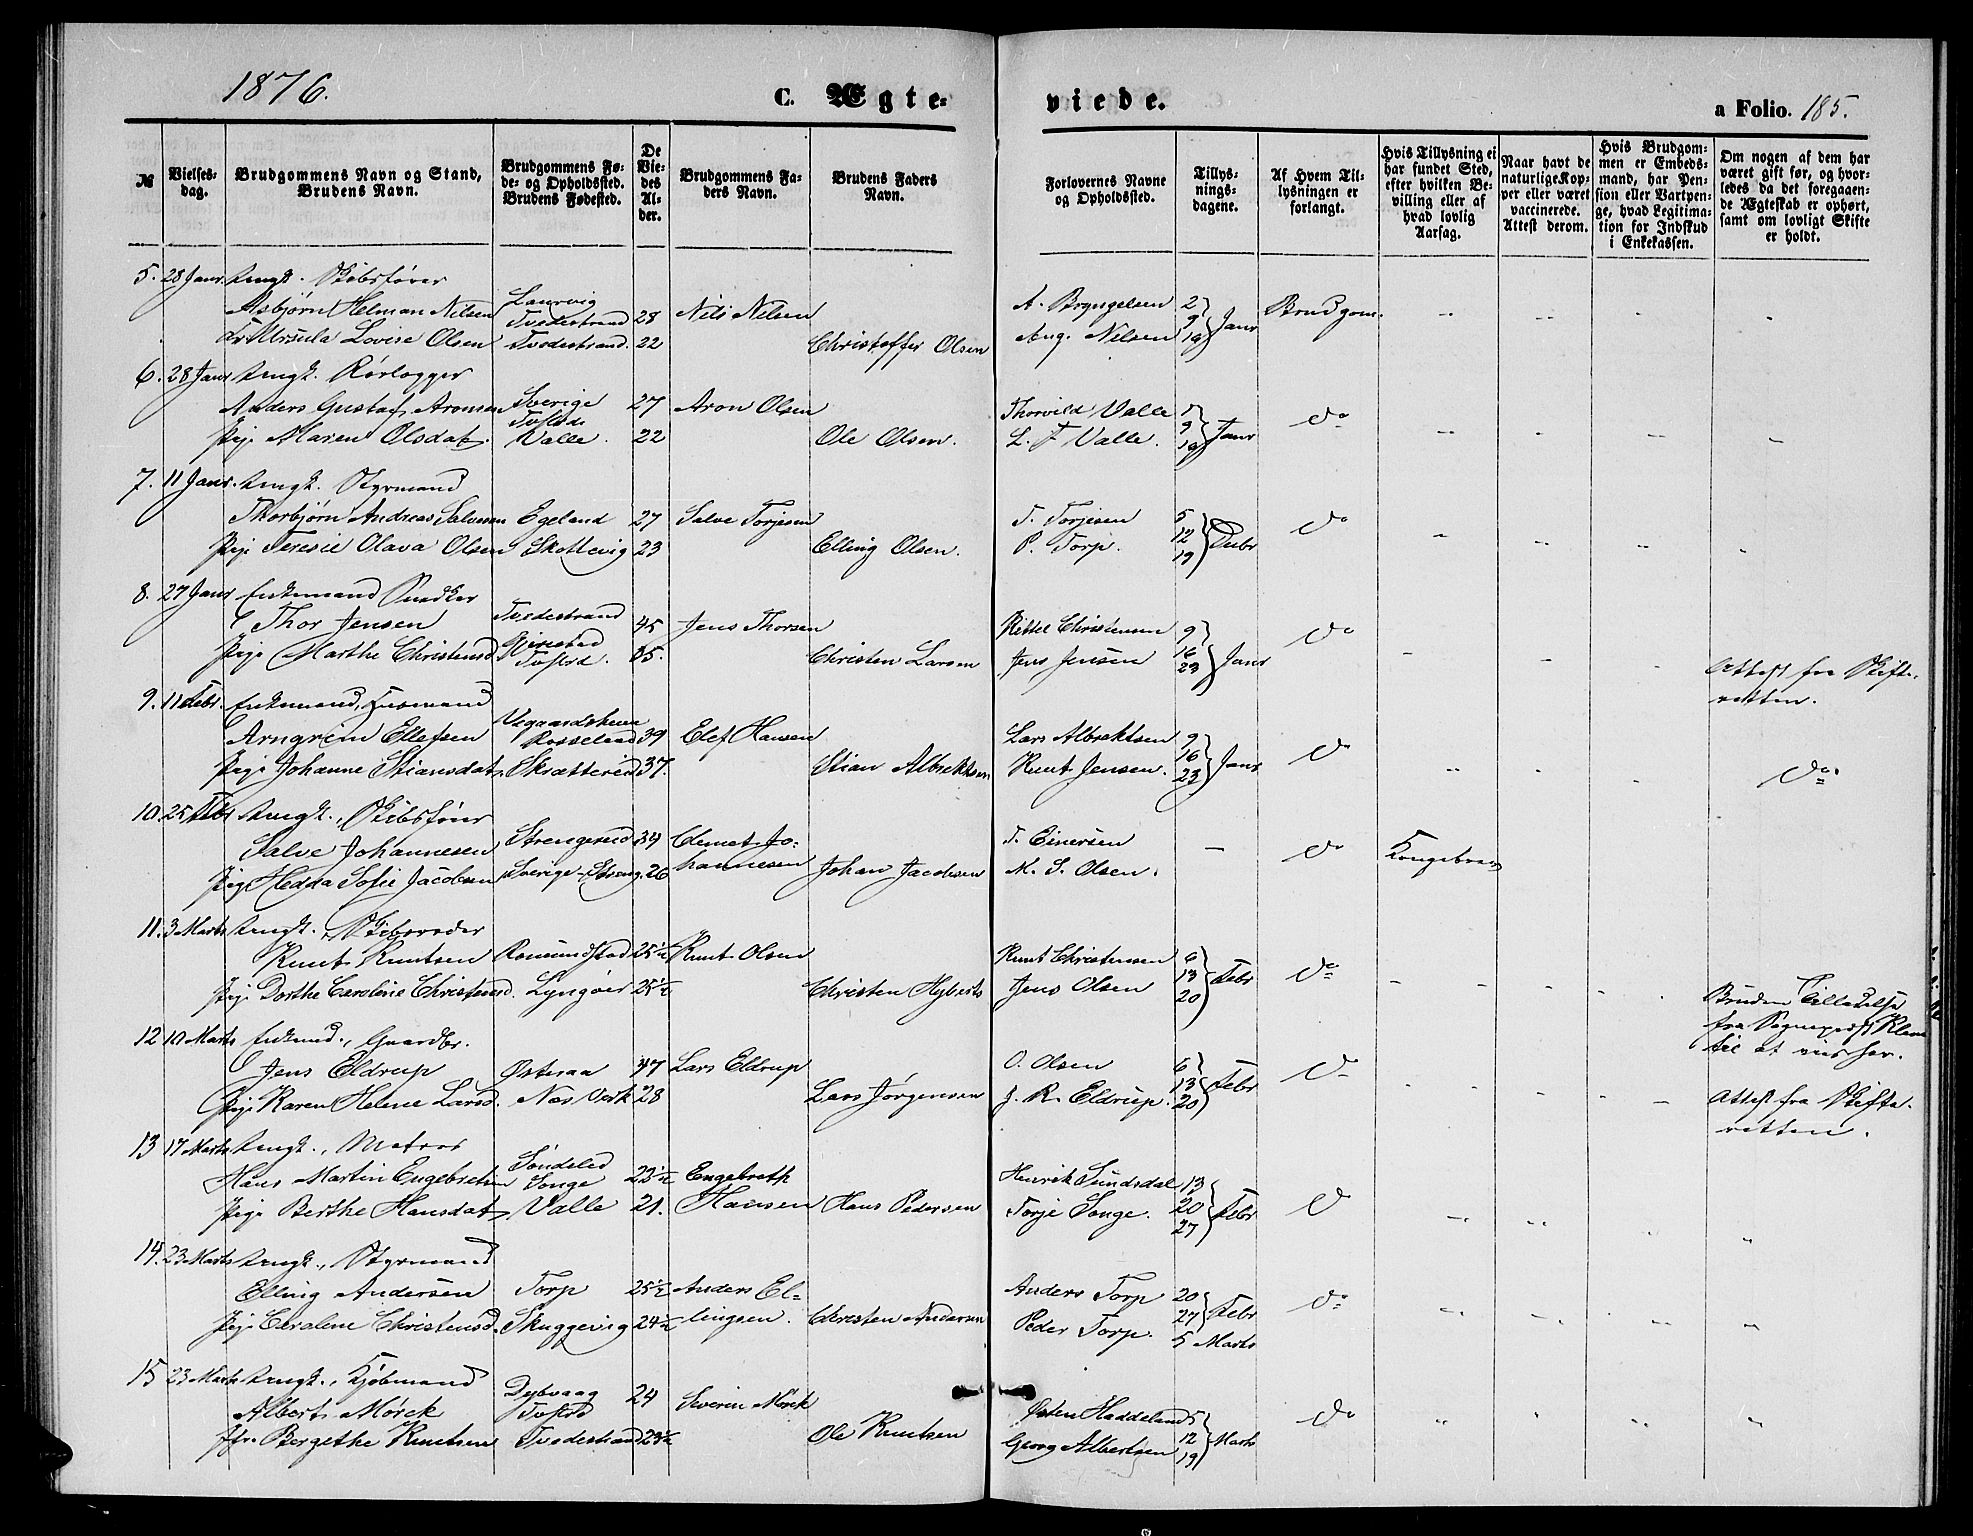 1876.
C. Ægte-
viede.
a Folio. 185.
№
Vielses-
dag.
Brudgommens Navn og Stand,
Brudens Navn.
Brudgommens Fø-
de- og Opholdssted.
Brudens Fødested.
De
Vie-
des
Al-
der.
Brudgommens Fa-
ders Navn.
Brudens Faders
Navn.
Forlovernes Navne
og Opholdssted.
Tillys-
nings-
dagene.
Af Hvem Til-
lysningen er
forlangt.
Hvis Tillysning ei
har fundet Sted,
efter hvilken Be-
villing eller af
hvad lovlig
Aarsag.
Naar havt de
naturlige Kop-
per eller været
vaccinerede.
Attest derom.
Hvis Brudgom-
men er Embeds-
mand, har Pen-
sion eller Vartpen-
ge, hvad Legitima-
tion for Indskud
i Enkekassen.
Om nogen af dem har
været gift før, og hvor-
ledes da det foregaaen-
de Ægteskab er ophørt,
samt om lovligt Skifte
er holdt.
5. 28 Janr. Ungk. Skibsfører
Asbjørn Helman Nilsen Laurvig Tvedestrand 28 Nils Nilsen A. Bryngelsen 2 9 Janr Brudgom.
Ursula Lovise Olsen Tvedestrand. 22 Christoffer Olsen Aug. Nilsen
6. 28 Janr Ungk. Rørlægger
Anders Gustaf Aronsen Sverige 27 Aron Olsen Thorvild Valle 9 Janr Do
Pige Maren Olsdat. Valle. 22 Ole Olsen. L. T Valle.
7. 11 Janr. Ungk. Styrmand
Thorbjørn Andreas Salvesen Egeland 27 Salve Torjesen T. Torjesen 5 12 19 Debr Do
Pige Teresie Olava Olsen Skottevig 23 Elling Olsen. P. Torp.
8. 27 Janr Enkemand Snedker
Thor Jensen Tvedestrand 45 Jens Thorsen Kittel Christensen 9 16 23 Janr Do
Pige Marthe Christensd Gjerestad 35. Christen Larsen Jens Jensen Attest fra Skifte-
retten.
9. 11 Febr. Enkemand, Husmand
Arngrim Ellefsen Vegaardsheien Rosseland 39 Elef Hansen Lars Albrektsen 9 16 23 Janr Do
Pige Johanne Stiansdat. Skrætterud 37. Stian Albrektsen Knut Jensen. Do.
10. 25 Febr Ungk., Skibsfører
Salve Johannesen Strengereid 34 Clemet Jo-
hannesen T. Einersen Do Kongebrev
Pige Hedda Sofie Jacobsen Sverige-Streng. 26 Johan Jacobsen M. S. Olsen.
11. 3 Marts Ungk., Skibsreder
Knut Knutsen 25½ Knut Olsen Knut Christensen 6 13 20 Febr Do
Pige Dorthe Caroline Christensd. Lyngøer 25½ Christen Jens Olsen
Bruden Tilladelse
fra Sognepræst
til at vies her.
12 10 Marts Enkemd., Gaardbr.
Jens Eldrup Østeraa 47 Lars Eldrup O. Olsen 6 13 20 Febr Do
Pige Karen Helene Larsd. Næs Verk 28 Lars Jørgensen J. R. Eldrup. Attest fra Skifte-
retten.
13 17 Marts Ungk., Matros
Hans Martin Engebretsen Søndeled Songe 22½ Engebreth
Hansen Henrik Sundsdal 13 20 27 Febr Do
Pige Berthe Hansdat. Valle 21. Hans Pedersen Torje Songe.
14. 23 Marts Ungk., Styrmand
Elling Andersen Torp 25½ Anders El-
lingsen. Anders Torp 20 27 Febr Do
Pige Caroline Christensd. Skuggevig 24½ Christen Andersen Peder Torp. 5 Marts
15 23 Marts Ungk., Kjøbmand
Albert Mørck Dybvaag 24 Severin Mørck Østen Haddeland 5 12 19 Marts Do
Jfr. Bergethe Knutsen Tvedestrand 23½ Ole Knutsen Georg Albertsen